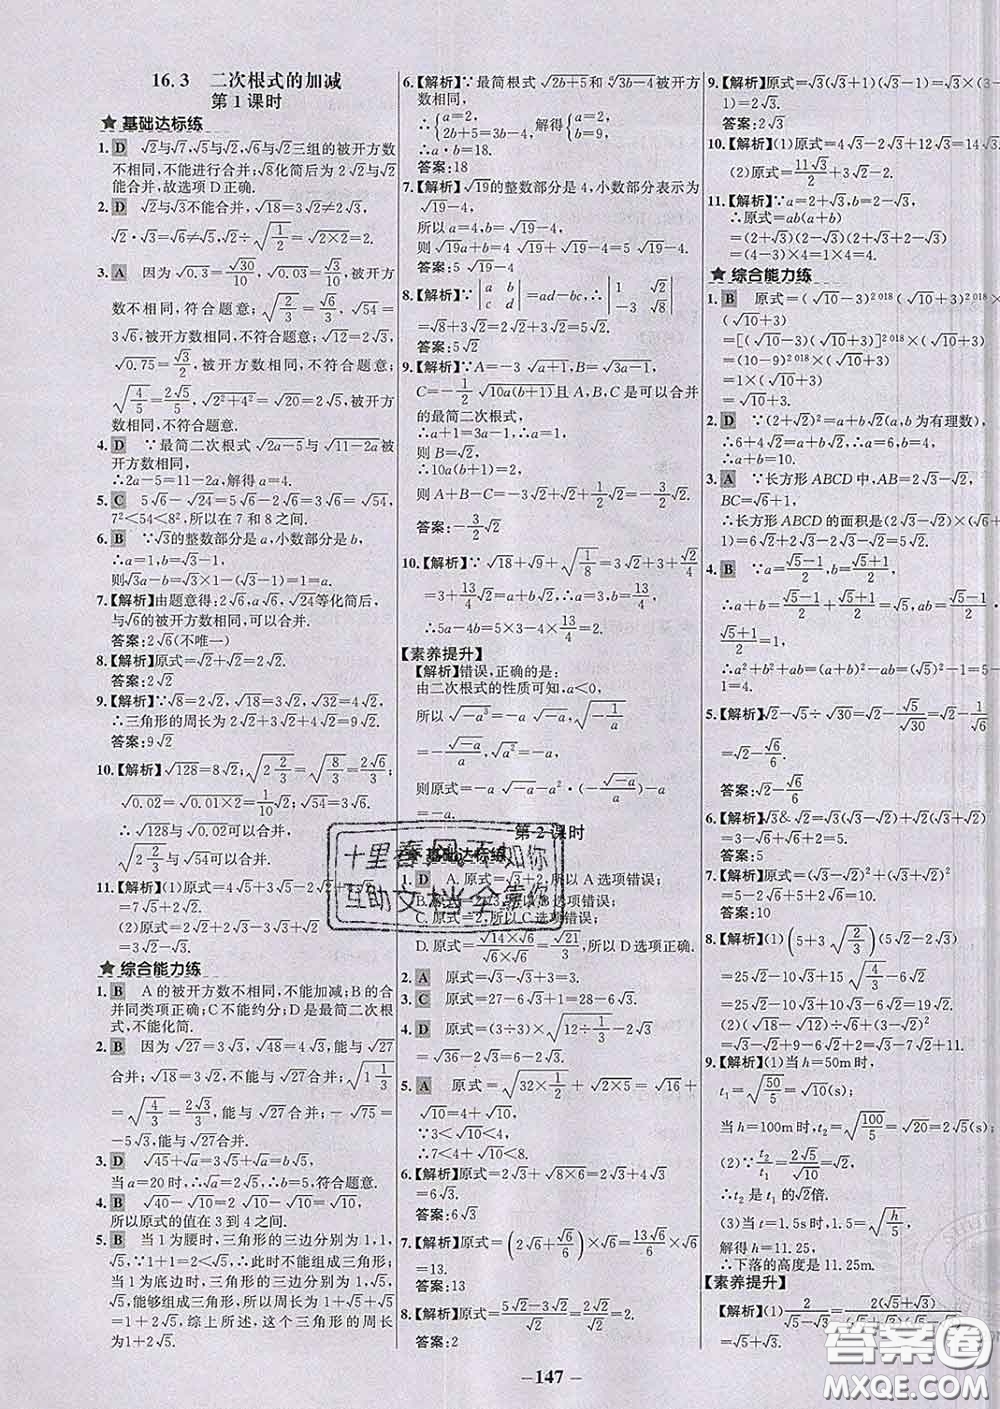 16.3 二次根式的加减
第1课时
★ 基础达标练
1. D √2与√7,√5与√2,√6与√2三组的被开方数
不相同,不能进行合并;√8化简后与√2能进行
合并,故选项D正确.
2. D √2与√3不能合并,√18=3√2≠2√3,
√2·√3=√6≠√5,√2÷√(1/2)=√2×√2=2.
3. A 因为√0.3=√30/10,√0.03=√3/10,被开方
数不相同,符合题意;√(2/3)=√6/3,√54=
3√6,被开方数相同,不符合题意;√12=2√3,
√0.75=√3/2,被开方数相同,不符合题意.
√(4/5)=2√5/5,√(2²+4²)=√20=2√5,被开
方数相同,不符合题意.
4. D ∵最简二次根式√(2a-5)与√(11-2a)被
开方数相同,
∴2a-5=11-2a,解得a=4.
5. C 5√6-√24=5√6-2√6=3√6=√54,
7²<54<8²,所以在7和8之间.
6. B ∵√3的整数部分是a,小数部分是b,
∴a=1,b=√3-1,
则√3a-b=√3×1-(√3-1)=1=a.
7.【解析】由题意得:2√6,a√6,√24等化简后,
与√6的被开方数相同,可以合并.
答案:2√6(不唯一)
8.【解析】原式=√2+√2=2√2.
答案:2√2
9.【解析】∵√8=2√2,√18=3√2,√32=4√2,
∴三角形的周长为2√2+3√2+4√2=9√2.
答案:9√2
10.【解析】√128=8√2;√(2 2/3)=√(8/3)=2√6/3;
√0.02=√(0.01×2)=1/10√2;√54=3√6.
∴√128与√0.02可以合并;
√(2 2/3)与√54可以合并.
11.【解析】(1)原式=4√5+3√5-2√2+4√2
=7√5+2√2.
(2)原式=2√3+√2+√3-√2
=3√3.
★ 综合能力练
1. B A的被开方数不相同,不能加减;B的合
并同类项正确;C不能约分;D是最简二次根
式,不能化简.
2. B 因为√27=3√3,√12=2√3,能与√27
合并;√18=3√2,不能与√27合并;√(1 1/3)
=√(4/3)=2√3/3,能与√27合并;-√75=
-5√3,能与√27合并.
3. D √45+√a=3√5+√a=b√5,
当a=20时,√a=2√5,∴b=5,符合题意.
4. B √40-√10=2√10-√10=√10,
所以原式的值在3到4之间.
5. B 当1为腰时,三角形的三边分别为1,1,
√5,∵1+1=2<√5,∴此时不能组成三角形;
当1为底边时,三角形的三边分别为1,√5,
√5,能够组成三角形,所以周长为1+√5+√5
=1+2√5,综上所述,这个三角形的周长为
1+2√5.
6.【解析】∵最简根式√(2b+5)和ᵃ√(3b-4)被开方
数相同,
∴{a=2, 2b+5=3b-4, 解得{a=2, b=9,
∴a·b=18.
答案:18
7.【解析】√19的整数部分是4,小数部分表示为
√19-4,
所以a=4,b=√19-4,
则√19a+b=4√19+√19-4=5√19-4.
答案:5√19-4
8.【解析】∵|a b; c d|=ad-bc,∴|1 √2; -3 √8|
=√8+3√2=2√2+3√2=5√2.
答案:5√2
9.【解析】∵A=-3√(a+1),B=√(3a-1),
C=-1/2√(10a(b+1))且A,B,C是可以合并
的最简二次根式,
∴a+1=3a-1,∴a=1.
则B=√2.
∴10a(b+1)=2.
则A+B-C=-3√2+√2+1/2√2=-3/2√2.
答案:-3/2√2
10.【解析】∵√18+√9+√(1/8)=3√2+3+√2/4
=3+13/4√2,∴a=3,b=13/4.
∴5a-4b=5×3-4×13/4=2.
【素养提升】
【解析】错误,正确的是:
由二次根式的性质可知,a<0,
所以√(-a³)=-a√(-a),√(-1/a)
=-√(-a)/a,√(a²)=-a.
则原式=-a√(-a)-a²·(-√(-a)/a)-a=
-a.
第2课时
★ 基础达标练
1. D A.原式=√3+2,所以A选项错误;
C.原式=2,所以C选项错误;
D.原式=√(14×√6)/(√6×√6)=√21/3,所以D选项正确.
2. A 原式=√3-√3+1=1.
3. C 原式=27-6√3+1=28-6√3.
4. D 原式=(3÷3)×√(12÷1/3)-2√3
=√36-2√3=6-2√3.
5. A 原式=√(32×1/2)+√(2×5)=√16+
√10=4+√10.
∵3<√10<4,
∴7<4+√10<8.
6.【解析】原式=2√3+√(8×6)=2√3+4√3
=6√3.
答案:6√3
7.【解析】原式=(2√6+√6/6)×√6=13√6/6×√6
=13.
答案:13
8.【解析】原式=(5√2-3√2)/√2=2√2/√2=2.
答案:2
9.【解析】原式=√3(√3+1)(√3-1)=√3(3-
1)=2√3.
答案:2√3
10.【解析】(1)原式=4√3-2√3+12√3=14√3.
11.【解析】∵a=2+√3,b=2-√3,
∴原式=ab(a+b)
=(2+√3)(2-√3)(2+√3+2-√3)
=(4-3)×4=1×4=4.
★ 综合能力练
1. B 原式=(√10-3)²⁰¹⁸(√10+3)²⁰¹⁸×
(√10+3)
=[(√10-3)(√10+3)]²⁰¹⁸·(√10+3)
=1×(√10+3)
=√10+3.
2. D ∵(2+√2)²=a+b√2(a,b为有理数),
∴6+4√2=a+b√2,∴a=6,b=4,
∴a+b=10.
3. A ∵长方形ABCD中,AB=2√3-√2,
BC=√6+1,
∴长方形ABCD的面积是(2√3-√2)×(√6
+1)=6√2+2√3-2√3-√2=5√2.
4. B ∵a=(√5-1)/2,b=(√5+1)/2,
∴a+b=(√5-1)/2+(√5+1)/2=√5,ab=(√5-1)/2×
(√5+1)/2=1.
5.【解析】√2-√5÷√30=√2-√5/√30=√2-
=√2-√6/6.
答案:√2-√6/6
=3√6-√6+3=5
答案:5
答案:10
8.【解析】(1)(5+3√(2/3))(√8-√6)
=25√2-10√3+15√3-6√2=19√2.
(2)(√18-√12)÷√6+(√3-√2)²
=√3-√2+9-6√2=11+√3-7√2.
9.【解析】(1)当h=50m时,
t₁=√(50/5)=√10(s);
当h=100m时,t₂=√(100/5)=√20=2√5(s);
(2)∵t₂/t₁=2√5/√10=√2,
∴t₂是t₁的√2倍.
(3)当t=1.5s时,1.5=√(h/5),
解得h=11.25,
∴下落的高度是11.25m.
【素养提升】
=√5+√3.
十里春风不如你
互助文档全靠你
答案圈
MXQE.COM
- 147 -